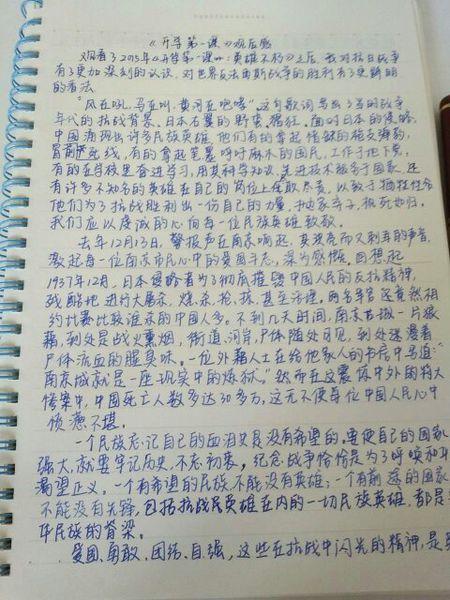 《开学第一课》观后感
观看了2015年《开学第一课·英雄不朽》之后,我对抗日战争
有了更加深刻的认识,对世界反法西斯战争的胜利有了更鲜明
的看法。
"风在吼,马在叫,黄河在咆哮"这句歌词写出了当时战争
年代的抗战背景、日本右翼的野蛮、猖狂。面对日本的侵略,
中国涌现出许多民族英雄,他们有的拿起
冒前死线,有的拿起笔墨呼吁麻木的国民,工作于地下党,
有的在学校里奋进学习,用其科学知识、先进技术服务于国家,还
有许多不知名的英雄在自己的岗位上尽职尽责,以致于牺牲性命
他们为了抗战胜利出一份自己的力量,抛家弃子,视死如归,
我们应以虔诚的心向每一位民族英雄致敬。
去年12月13日,警报声在南京响起,其哀而又刺耳的声音,
激起每一位南京市民心中的爱国斗志,深为感慨。回想起
1937年12月,日本侵略者为了彻底摧毁中国人民的反抗精神,
残酷地进行大屠杀,烧、杀、抢、掠、甚至活埋,两名军官还竟然相
约比赛比较谁杀的中国人多。不到几天时间,南京古城一片狼
藉,到处是战火熏烟,街道、河岸,尸体随处可见,到处弥漫着
尸体流血的腥臭味。一位外籍人士在给他家人的书信中写道:"
南京城就是一座现实中的炼狱。"然而在这震惊中外的特大
惨案中,中国死亡人数多达30多万,这无不使每位中国人民心中
愤懑不堪。
一个民族忘记自己的血泪史是没有希望的,要使自己的国家
强大,就要牢记历史,不忘初衷,纪念战争恰恰是为了呼唤和平
渴望正义。一个有希望的民族不能没有英雄;一个有前途的国家
不能没有先锋,包括抗战民英雄在内的一切民族英雄,都是
华民族的脊梁。
爱国、勇敢、团结、自强,这些在抗战中闪光的精神,是